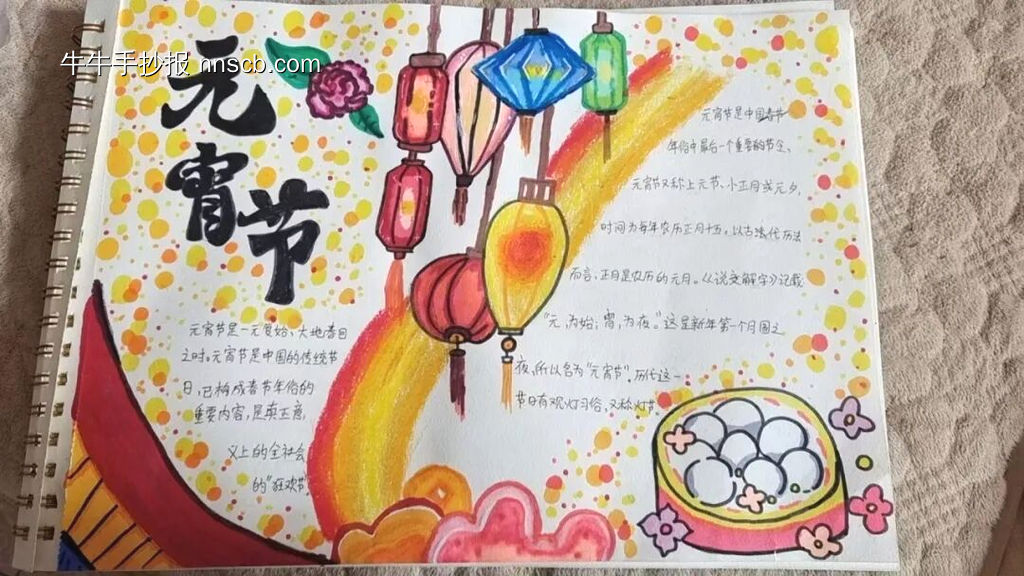 牛牛手抄报 nnscb.com
元
宵
节
元宵节是一元复始、大地春回
之时。元宵节是中国的传统节
日,已构成春节年俗的
重要内容,是真正意
义上的全社会
的"狂欢节
元宵节是中国春节
年俗中最后一个重要的节令、
元宵节又称上元节、小正月或元夕,
时间为每年农历正月十五,以古
代历法
而言、正月是农历的元月。《说文解字》记载
"元,为始;宵,为夜。"这是新年第一个月圆之
夜,所以名为"元宵节"。历代这一
节日有观灯习俗,又称灯节。